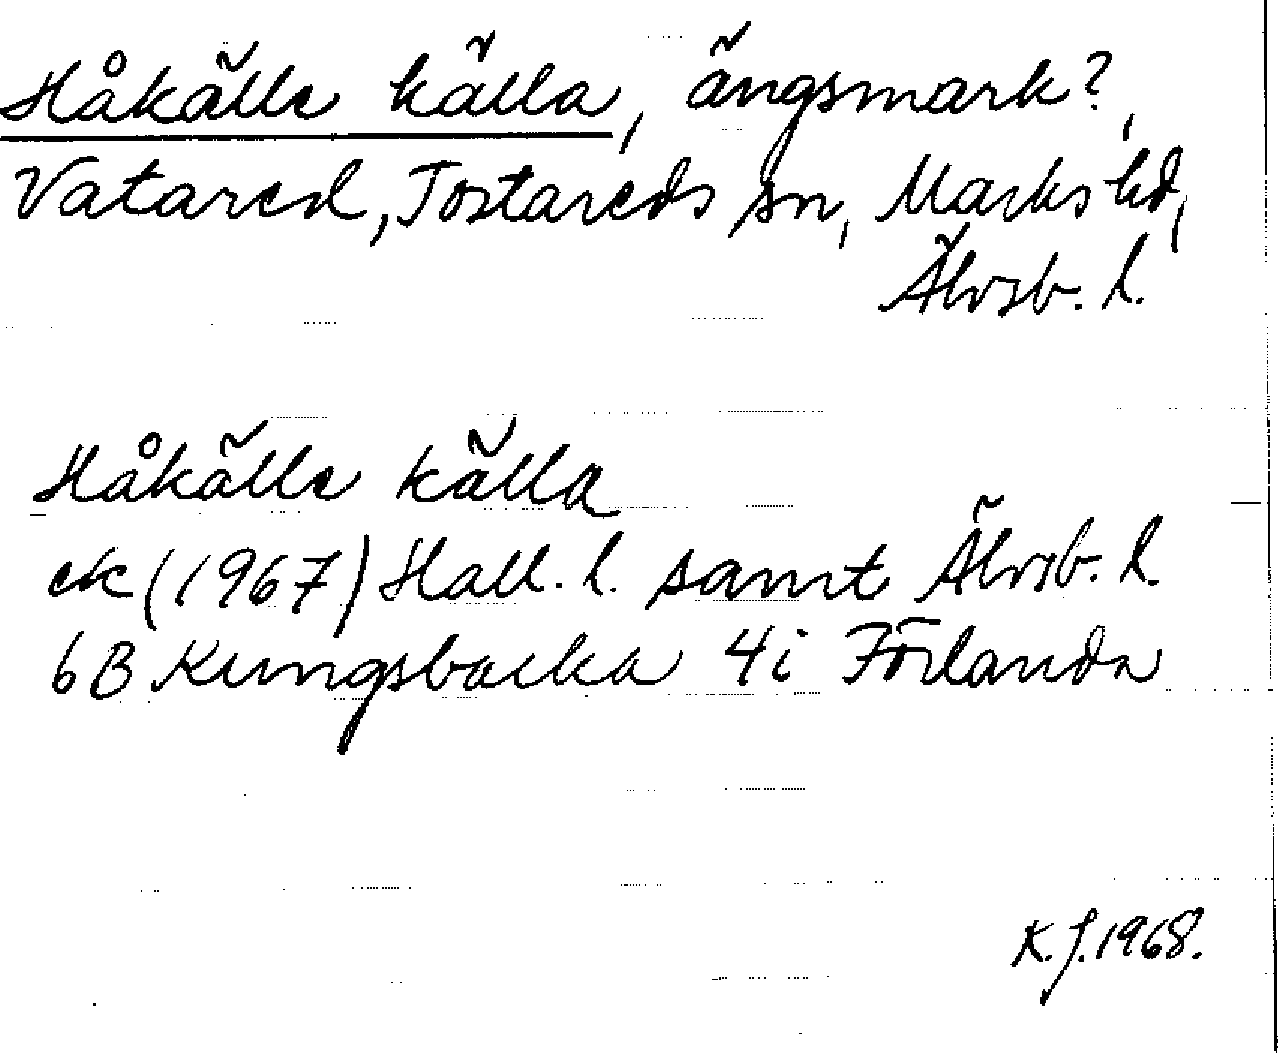 Håkälle källa, ängsmark?,
Vatared, Tostareds sn, Marks hd,
Älvsb. l.
Håkälle källa
ek (1967) Hall. l. samt Älvsb. l.
6B Kungsbacka 4i Förlanda
K.J. 1968.